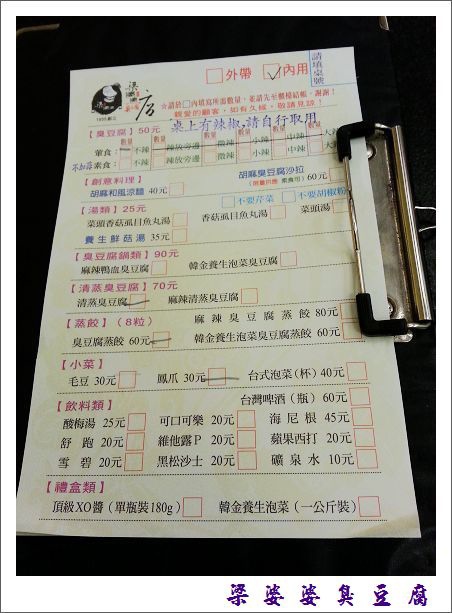 梁婆婆
1955創立
店
請填桌號
□外帶 ☑內用
☆請於□內填寫所需數量，並請先至櫃檯結帳，謝謝！
親愛的顧客，如有久候，敬請見諒！
桌上有辣椒，請自行取用
【臭豆腐】50元
數量 數量 數量 數量 數量 數量
葷食： 不辣 辣放旁邊 微辣 小辣 中辣 大辣
不加蒜 素食： 不辣 辣放旁邊 微辣 小辣 中辣 大辣
【創意料理】
胡麻和風涼麵 40元
胡麻臭豆腐沙拉 60元
(限量供應 素食可)
【湯類】25元 □不要芹菜 □不要胡椒粉
菜頭香菇虱目魚丸湯 香菇虱目魚丸湯 菜頭湯
養生鮮菇湯 35元
【臭豆腐鍋類】90元
麻辣鴨血臭豆腐 韓金養生泡菜臭豆腐
【清蒸臭豆腐】70元
清蒸臭豆腐 麻辣清蒸臭豆腐
【蒸餃】(8粒) 麻辣臭豆腐蒸餃 80元
臭豆腐蒸餃 60元 韓金養生泡菜臭豆腐蒸餃 60元
【小菜】
毛豆 30元 鳳爪 30元 台式泡菜(杯) 40元
【飲料類】 台灣啤酒(瓶) 60元
酸梅湯 25元 可口可樂 20元 海尼根 45元
舒跑 20元 維他露P 20元 蘋果西打 20元
雪碧 20元 黑松沙士 20元 礦泉水 10元
【禮盒類】
頂級XO醬(單瓶裝180g) 韓金養生泡菜(一公斤裝)
梁婆婆臭豆腐